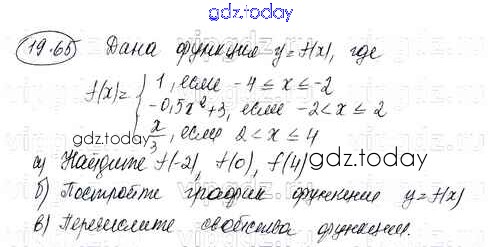 gdz.today
19.65 Дана функция y=f(x), где
f(x)= { 1, если -4 ≤ x ≤ -2
-0,5x²+3, если -2 < x ≤ 2
x/3, если 2 < x ≤ 4
gdz.today
а) Найдите f(-2), f(0), f(4)
gdz.today
б) Постройте график функции y=f(x)
в) Перечислите свойства функции.